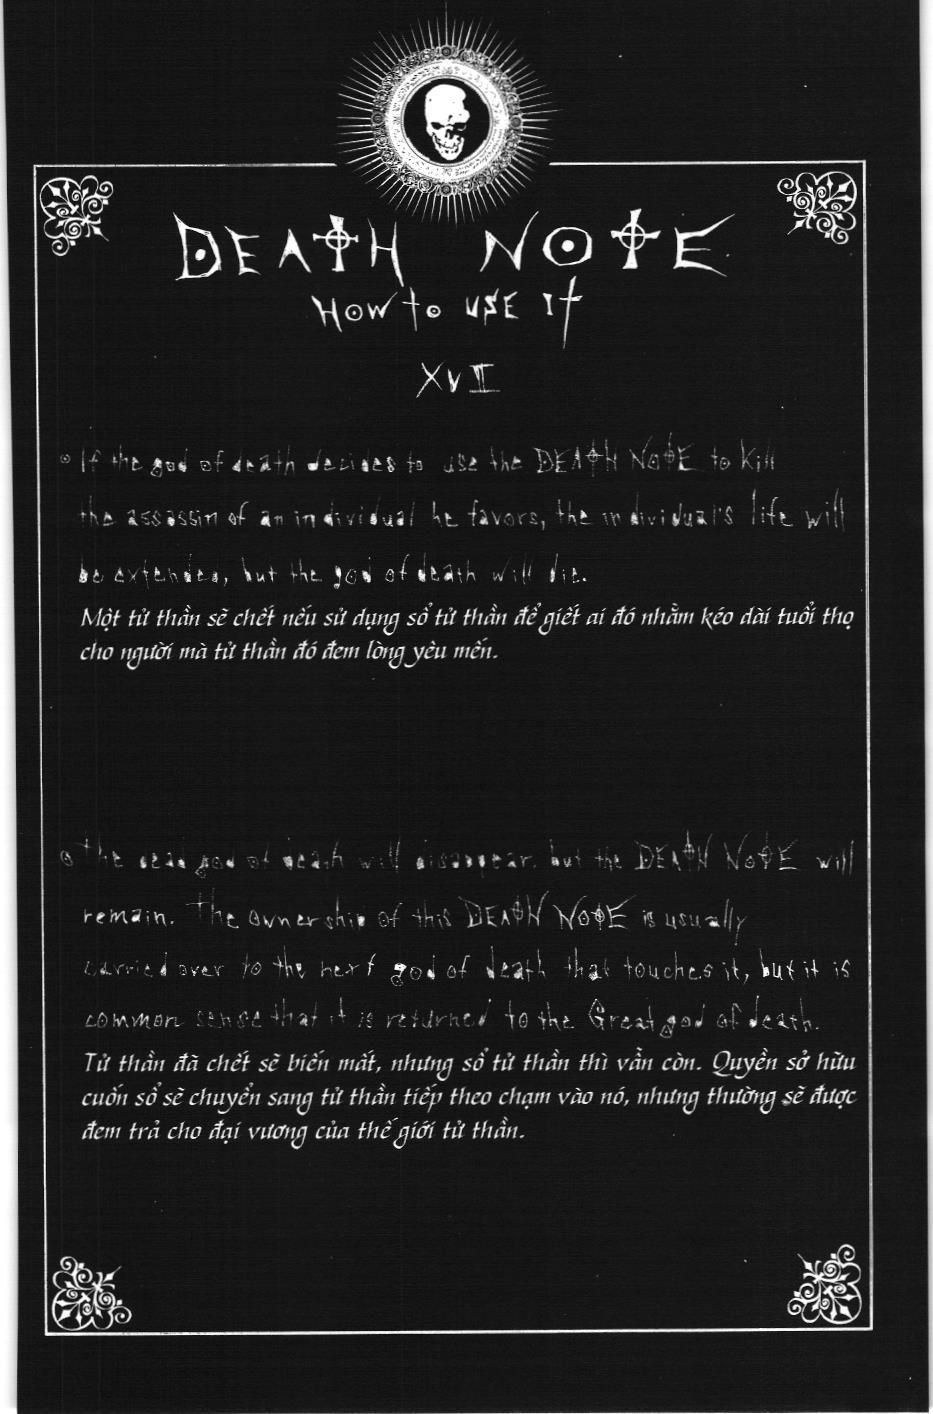 DEATH NOTE
How to use it
XVII
If the god of death decides to use the DEATH NOTE to kill
the assassin of an individual he favors, the individual's life will
be extended, but the god of death will die.
Một tử thần sẽ chết nếu sử dụng sổ tử thần để giết ai đó nhằm kéo dài tuổi thọ
cho người mà tử thần đó đem lòng yêu mến.
The dead god of death will disappear, but the DEATH NOTE will
remain. The ownership of this DEATH NOTE is usually
carried over to the next god of death that touches it, but it is
common sense that it is returned to the Great god of death.
Tử thần đã chết sẽ biến mất, nhưng sổ tử thần thì vẫn còn. Quyền sở hữu
cuốn sổ sẽ chuyển sang tử thần tiếp theo chạm vào nó, nhưng thường sẽ được
đem trả cho đại vương của thế giới tử thần.